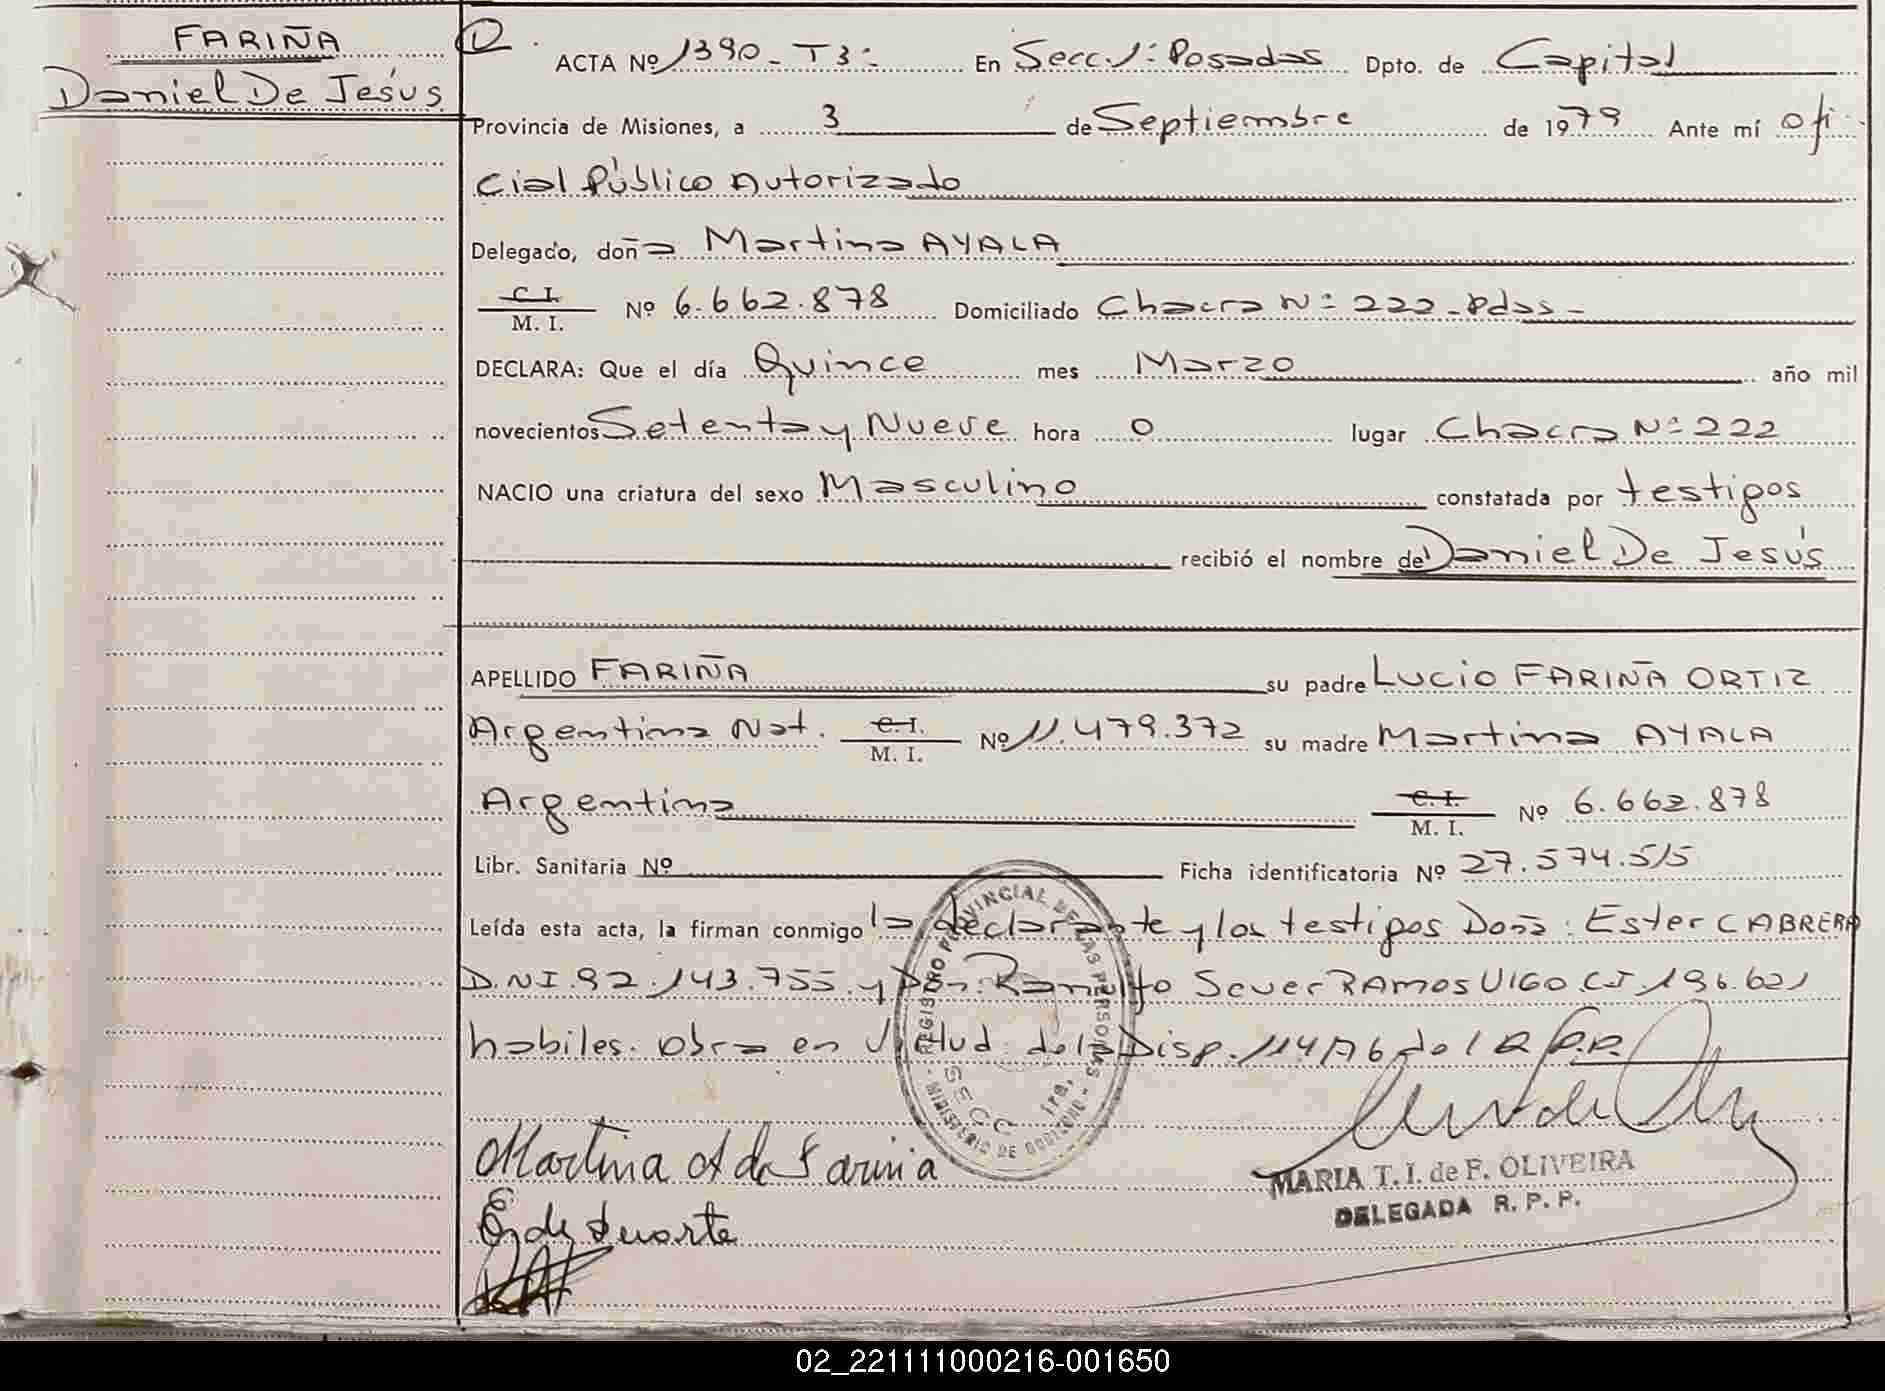 FARIÑA
Daniel De Jesús
ACTA Nº 1390 - T3 - En Secc. 1: Posadas Dpto. de Capital
Provincia de Misiones, a 3 de Septiembre de 1979 Ante mí ofi
cial Público Autorizado
Delegado, doña Martina AYALA
C. I.
M. I. Nº 6.662.878 Domiciliado Chacra Nº 222 - Pdas -
DECLARA: Que el día Quince mes Marzo año mil
novecientos Setenta y Nueve hora 0 lugar Chacra Nº 222
NACIO una criatura del sexo Masculino constatada por testigos
recibió el nombre de Daniel De Jesús
APELLIDO FARIÑA su padre LUCIO FARIÑA ORTIZ
Argentina Nat. C. I.
M. I. Nº 11.479.372 su madre Martina AYALA
Argentina C. I.
M. I. Nº 6.662.878
Libr. Sanitaria Nº Ficha identificatoria Nº 27.574.515
Leída esta acta, la firman conmigo la declarante y los testigos Doña: Ester CABRERA
D.N.I. 92.143.755. y Don: Ramulfo Sever RAMOS VIGO CI 196.621
habiles. Obra en Virtud de la Disp. 114/76 del R.P.P.
REGISTRO PROVINCIAL DE LAS PERSONAS
SECC 1ra.
- MINISTERIO DE GOBIERNO -
Martina A de Farinia
MARIA T. I. de F. OLIVEIRA
DELEGADA R. P. P.
de Duarte
02_221111000216-001650